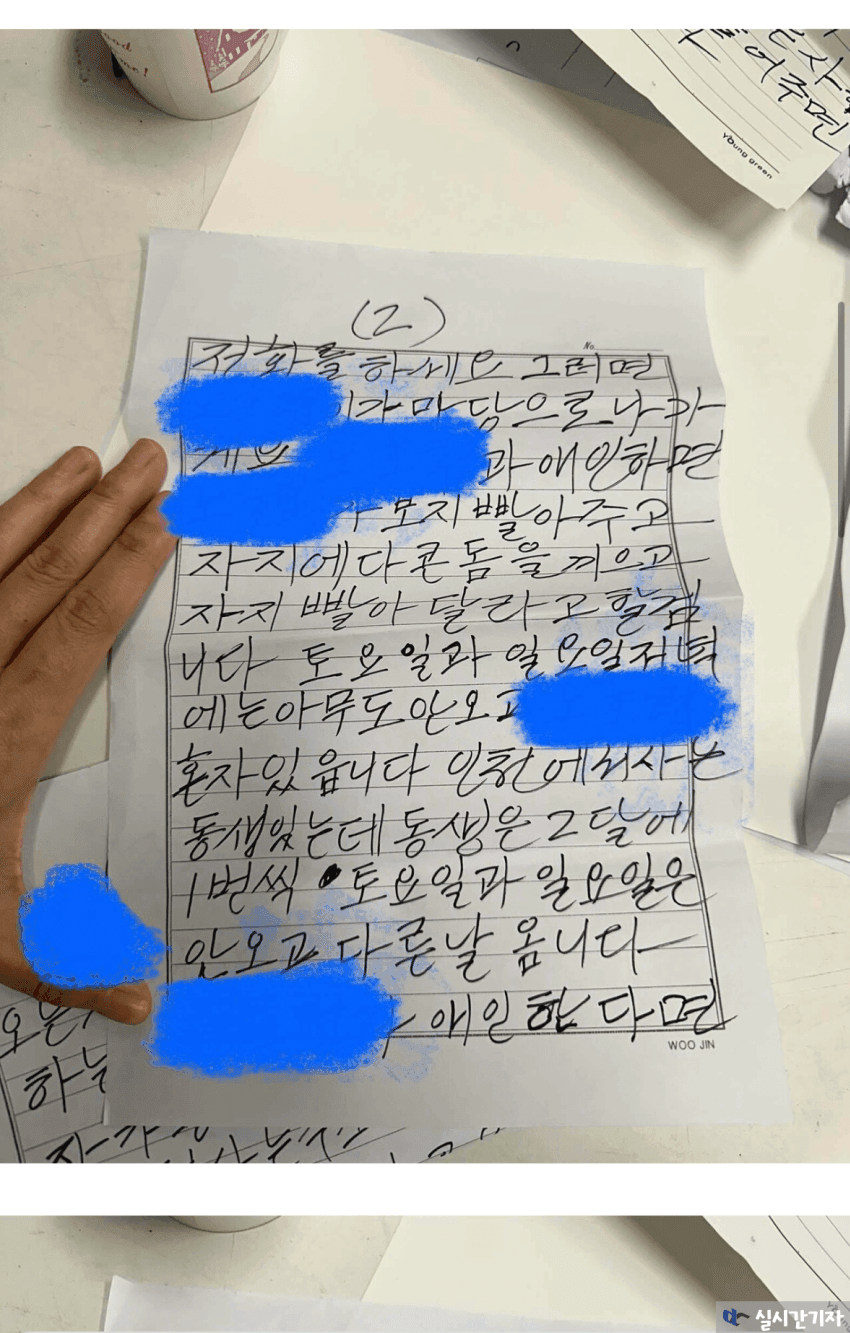 (2)
No.
저화를 하세요 그러면
가 마당으로 나가
과 애인하면
보지 빨아주고
자지에다 콘돔을 끼우고
자지 빨아 달라고 할겁
니다 토요일과 일요일저녁
에는 아무도 안오고
혼자 있읍니다 인천에서 사는
동생있는데 동생은 2달에
1번씩 토요일과 일요일은
안오고 다른날 옵니다
애인 한다면
WOO JIN
어주면
young green
하는
실시간기자